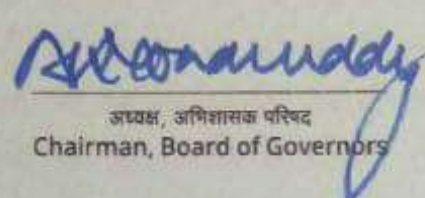 अध्यक्ष, अभिशासक परिषद
Chairman, Board of Governors